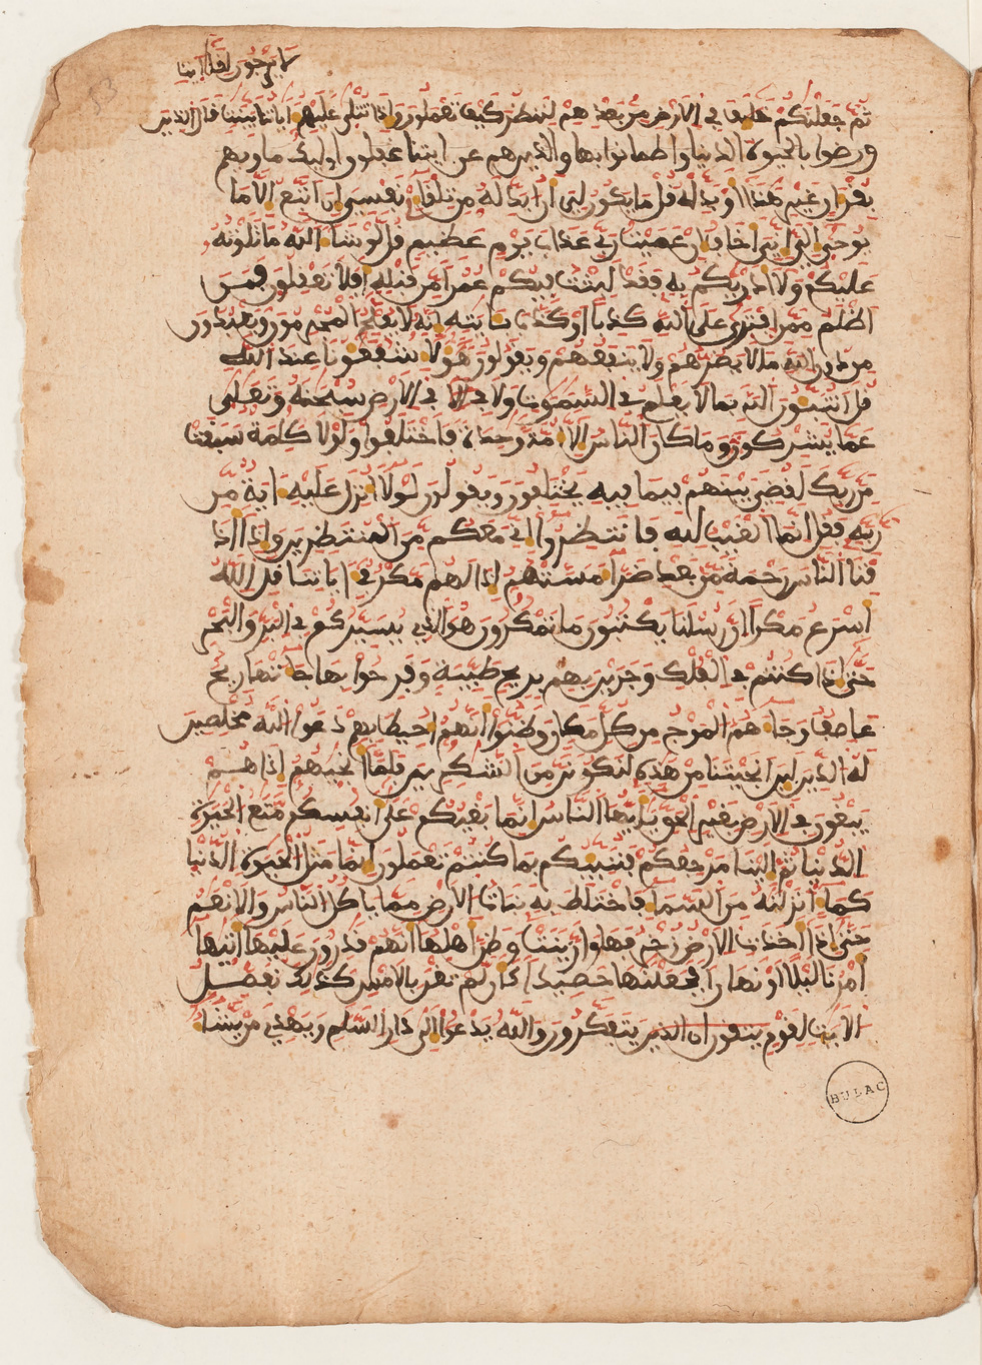 لا يرجون لقانا
ثم جعلنكم خليف في الارض من بعدهم لننظر كيف تعملون واذا تتلى عليهم اياتنا بينت قال الذين
ورضوا بالحيوة الدنيا واطمانوا بها والذين هم عن ايتنا غفلون اوليك ماويهم
بقران غير هذا او بدله قل ما يكون لي ان ابدله من تلقا نفسي ان اتبع الا ما
يوحى الي اني اخاف ان عصيت ربي عذاب يوم عظيم قل لو شا الله ما تلوته
عليكم ولا ادريكم به فقد لبثت فيكم عمرا من قبله افلا تعقلون فمن
اظلم ممن افترى على الله كذبا او كذب بايته انه لا يفلح المجرمون ويعبدون
من دون الله ما لا يضرهم ولا ينفعهم ويقولون هولا شفعونا عند الله
قل اتنبون الله بما لا يعلم في السموت ولا في الا في الارض سبحنه وتعلى
عما يشركون وما كان الناس الا امة وحدة فاختلفوا ولولا كلمة سبقت
من ربك لقضي بينهم فيما فيه يختلفون ويقولون لولا انزل عليه اية من
ربه فقل انما الغيب لله فانتظروا اني معكم من المنتظرين واذا اذا
قنا الناس رحمة من بعد ضرا مستهم اذا لهم مكر في اياتنا قل الله
اسرع مكرا ان رسلنا يكتبون ما تمكرون هو الذي يسيركم في البر والبحر
حتى اذا كنتم في الفلك وجرين بهم بريح طيبة وفرحوا بها جاتها ريح
عاصف وجاهم الموج من كل مكان وظنوا انهم احيط بهم دعوا الله مخلصين
له الدين لين انجيتنا من هذه لنكونن من الشكرين فلما انجيهم اذا هم
يبغون في الارض بغير الحق يايها الناس انما بغيكم على انفسكم متع الحيوة
الدنيا ثم الينا مرجعكم فننبيكم بما كنتم تعملون انما مثل الحيوة الدنيا
كما انزلنه من السما فاختلط به نبات الارض مما ياكل الناس والانعم
حتى اذا اخذت الارض زخرفها وازينت وظن اهلها انهم قدرون عليها اتيها
امرنا ليلا او نهارا فجعلنها حصيدا كان لم تغن بالامس كذلك نفصل
الايت لقوم يتقون ان الذين يتفكرون والله يدعوا الى دار السلم ويهدي من يشا
BULAC